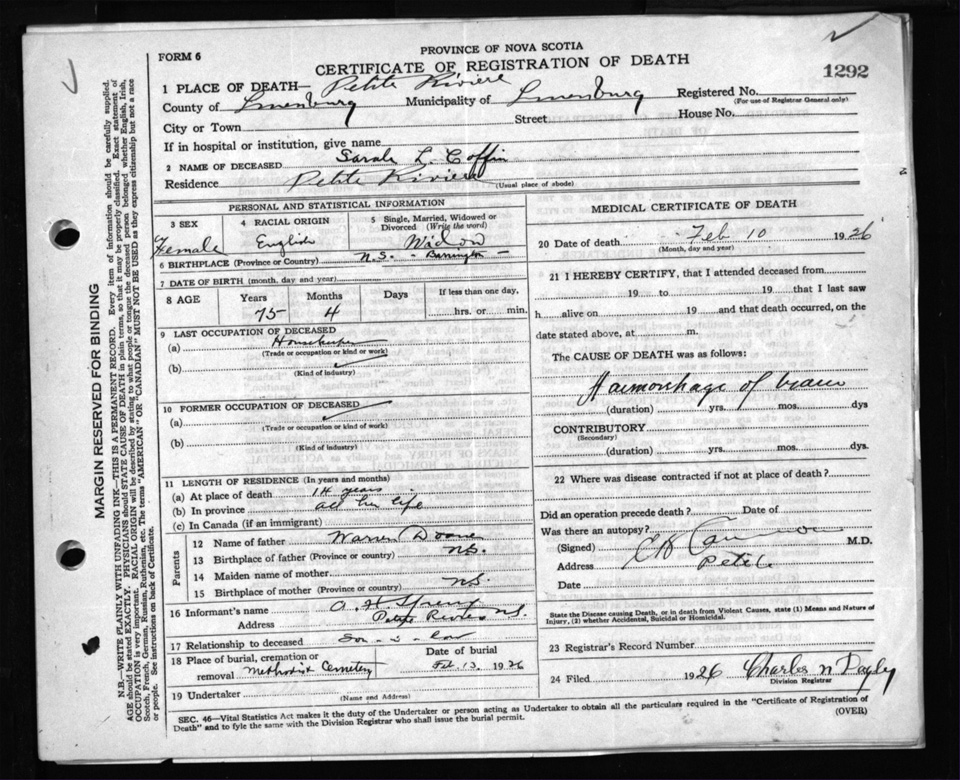 PROVINCE OF NOVA SCOTIA
FORM 6
CERTIFICATE OF REGISTRATION OF DEATH
1292
1 PLACE OF DEATH— Petite Riviere
Registered No.
(For use of Registrar General only)
County of Lunenburg Municipality of Lunenburg
City or Town Street House No.
If in hospital or institution, give name
2 NAME OF DECEASED Sarah L. Coffin
Residence Petite Riviere
(Usual place of abode)
PERSONAL AND STATISTICAL INFORMATION
3 SEX 4 RACIAL ORIGIN 5 Single, Married, Widowed or
Divorced (Write the word)
Female English Widow
6 BIRTHPLACE (Province or Country) N.S. - Barrington
7 DATE OF BIRTH (month, day and year)
8 AGE Years Months Days If less than one day,
75 4 hrs. or min.
9 LAST OCCUPATION OF DECEASED
(a) Housekeeper
(Trade or occupation or kind or work)
(b)
(Kind of industry)
10 FORMER OCCUPATION OF DECEASED
(a)
(Trade or occupation or kind of work)
(b)
(Kind of industry)
11 LENGTH OF RESIDENCE (In years and months)
(a) At place of death 14 years
(b) In province all her life
(c) In Canada (if an immigrant)
Parents
12 Name of father Warren Doane
13 Birthplace of father (Province or country) N.S.
14 Maiden name of mother
15 Birthplace of mother (Province or country) N.S.
16 Informant's name A. H.
Address Petite Riviere N.S.
17 Relationship to deceased Son-in-law
18 Place of burial, cremation or
removal Methodist Cemetery
Date of burial
Feb. 13. 1926
19 Undertaker
(Name and Address)
MEDICAL CERTIFICATE OF DEATH
20 Date of death Feb 10 1926
(Month, day and year)
21 I HEREBY CERTIFY, that I attended deceased from
19 to 19 that I last saw
h alive on 19 and that death occurred, on the
date stated above, at m.
The CAUSE OF DEATH was as follows:
Haemorrhage of brain
(duration) yrs. mos. dys
CONTRIBUTORY
(Secondary)
(duration) yrs. mos. dys.
22 Where was disease contracted if not at place of death?
Did an operation precede death? Date of
Was there an autopsy?
(Signed) M.D.
Address Petite
Date
State the Disease causing Death, or in death from Violent Causes, state (1) Means and Nature of
Injury, (2) whether Accidental, Suicidal or Homicidal.
23 Registrar's Record Number
24 Filed 1926 Charles N
Division Registrar
SEC. 46—Vital Statistics Act makes it the duty of the Undertaker or person acting as Undertaker to obtain all the particulars required in the "Certificate of Registration of
Death" and to fyle the same with the Division Registrar who shall issue the burial permit.
(OVER)
MARGIN RESERVED FOR BINDING
N.B.—WRITE PLAINLY WITH UNFADING INK.—THIS IS A PERMANENT RECORD. Every item of information should be carefully supplied.
AGE should be stated EXACTLY. PHYSICIANS should STATE CAUSE OF DEATH in plain terms, so that it may be properly classified. Exact statement of
OCCUPATION is very important. RACIAL ORIGIN will be described by stating to what people or tongue the deceased person belonged whether English, Irish,
Scotch, French, German, Russian, Ruthenian, etc. The terms "AMERICAN" OR "CANADIAN" MUST NOT BE USED as they express citizenship but not a race
or people. See instructions on back of Certificate.